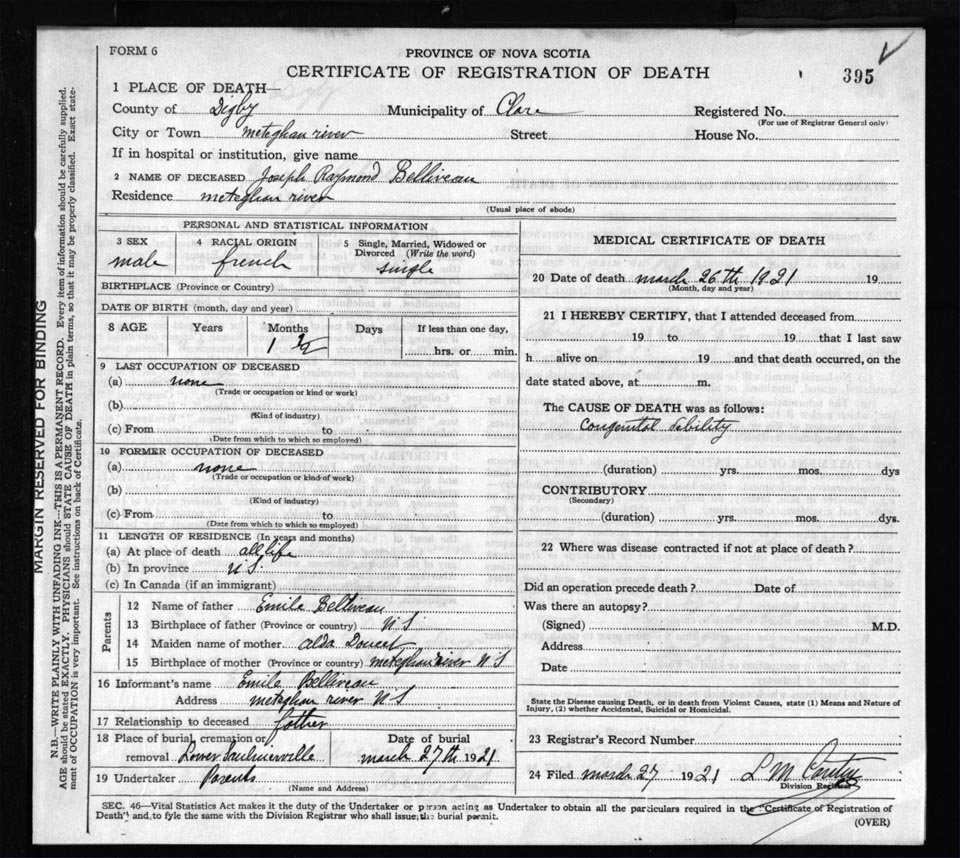 FORM 6
PROVINCE OF NOVA SCOTIA
CERTIFICATE OF REGISTRATION OF DEATH
395
1 PLACE OF DEATH—
County of Digby Municipality of Clare Registered No.
(For use of Registrar General only)
City or Town meteghan river Street House No.
If in hospital or institution, give name
2 NAME OF DECEASED Joseph Raymond Belliveau
Residence meteghan river
(Usual place of abode)
PERSONAL AND STATISTICAL INFORMATION
3 SEX 4 RACIAL ORIGIN 5 Single, Married, Widowed or
Divorced (Write the word)
male french single
BIRTHPLACE (Province or Country)
DATE OF BIRTH (month, day and year)
8 AGE Years Months Days If less than one day,
1 1/2
hrs. or min.
9 LAST OCCUPATION OF DECEASED
(a) none
(Trade or occupation or kind or work)
(b)
(Kind of industry)
(c) From to
(Date from which to which so employed)
10 FORMER OCCUPATION OF DECEASED
(a) none
(Trade or occupation or kind of work)
(b)
(Kind of industry)
(c) From to
(Date from which to which so employed)
11 LENGTH OF RESIDENCE (In years and months)
(a) At place of death all life
(b) In province N.S.
(c) In Canada (if an immigrant)
Parents
12 Name of father Emile Belliveau
13 Birthplace of father (Province or country) N S
14 Maiden name of mother alda Doucet
15 Birthplace of mother (Province or country) meteghan river N S
16 Informant's name Emile Belliveau
Address meteghan river N S
17 Relationship to deceased father
18 Place of burial, cremation or Date of burial
removal Lower Saulnierville march 27th 1921
19 Undertaker Parents
(Name and Address)
MEDICAL CERTIFICATE OF DEATH
20 Date of death march 26th 1921 19
(Month, day and year)
21 I HEREBY CERTIFY, that I attended deceased from
19 to 19 that I last saw
h alive on 19 and that death occurred, on the
date stated above, at m.
The CAUSE OF DEATH was as follows:
Congenital debility
(duration) yrs. mos. dys
CONTRIBUTORY
(Secondary)
(duration) yrs. mos. dys.
22 Where was disease contracted if not at place of death?
Did an operation precede death? Date of
Was there an autopsy?
(Signed) M.D.
Address
Date
State the Disease causing Death, or in death from Violent Causes, state (1) Means and Nature of
Injury, (2) whether Accidental, Suicidal or Homicidal.
23 Registrar's Record Number
24 Filed march 27 1921 L M
Division Registrar
SEC. 46—Vital Statistics Act makes it the duty of the Undertaker or person acting as Undertaker to obtain all the particulars required in the "Certificate of Registration of
Death" and to fyle the same with the Division Registrar who shall issue the burial permit.
(OVER)
MARGIN RESERVED FOR BINDING
N.B.—WRITE PLAINLY WITH UNFADING INK—THIS IS A PERMANENT RECORD. Every item of information should be carefully supplied.
AGE should be stated EXACTLY. PHYSICIANS should STATE CAUSE OF DEATH in plain terms, so that it may be properly classified. Exact state-
ment of OCCUPATION is very important. See instructions on back of Certificate.